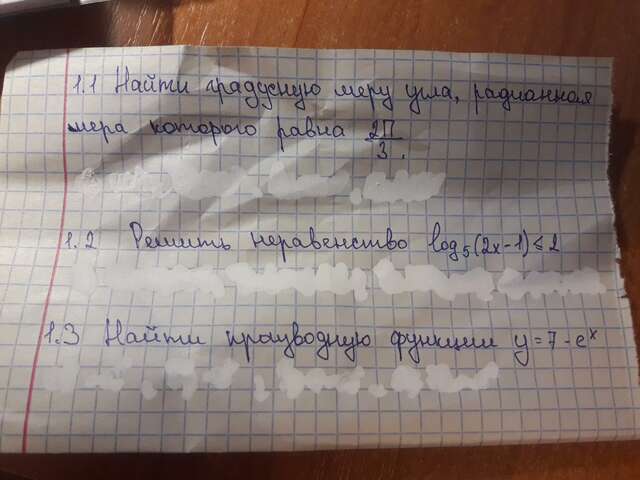 1.1 Найти градусную меру угла, радианная
мера которого равна 2П/3.
1.2 Решить неравенство log₅(2x-1)≤2
1.3 Найти производную функции y=7-eˣ